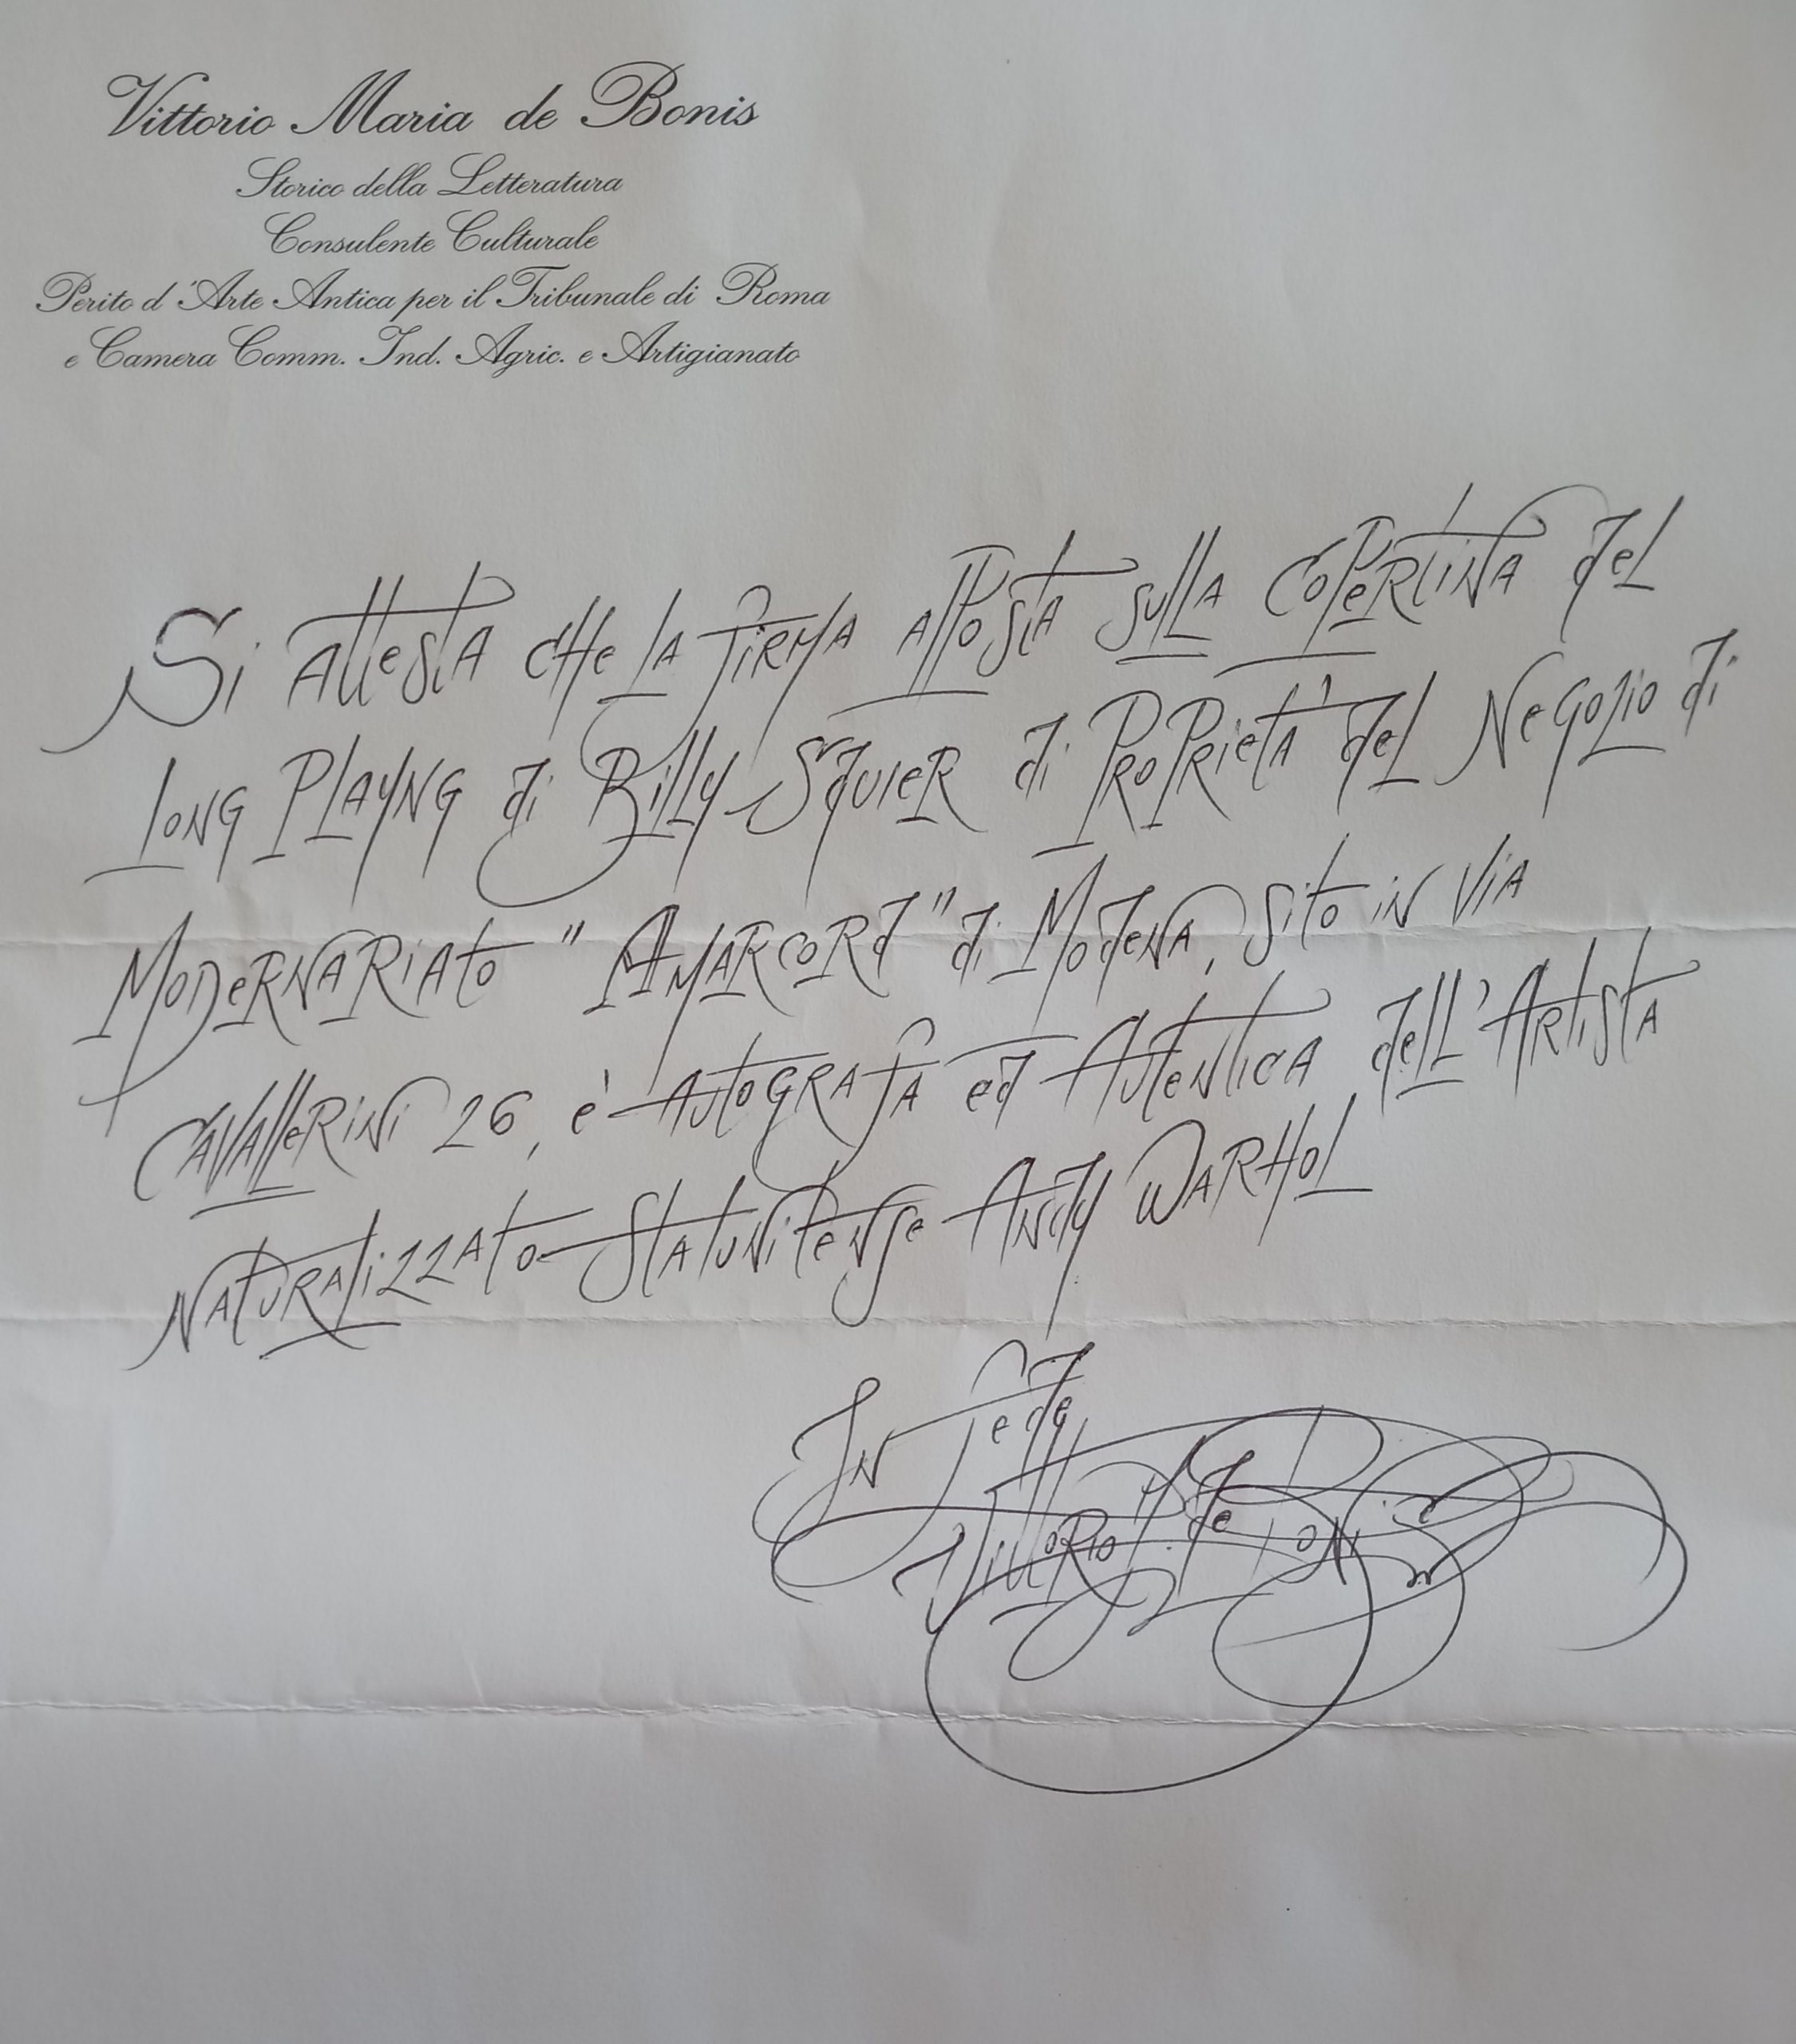 Vittorio Maria de Bonis
Storico della Letteratura
Consulente Culturale
Perito d'Arte Antica per il Tribunale di Roma
e Camera Comm. Ind. Agric. e Artigianato
Si attesta che la firma apposta sulla copertina del
Long Playng di Billy Squier di proprietà del Negozio di
Modernariato "Amarcord" di Modena, sito in Via
Cavallerini 26, è autografa ed autentica dell'Artista
Naturalizzato Statunitense Andy Warhol
In fede
Vittorio M. de Bonis